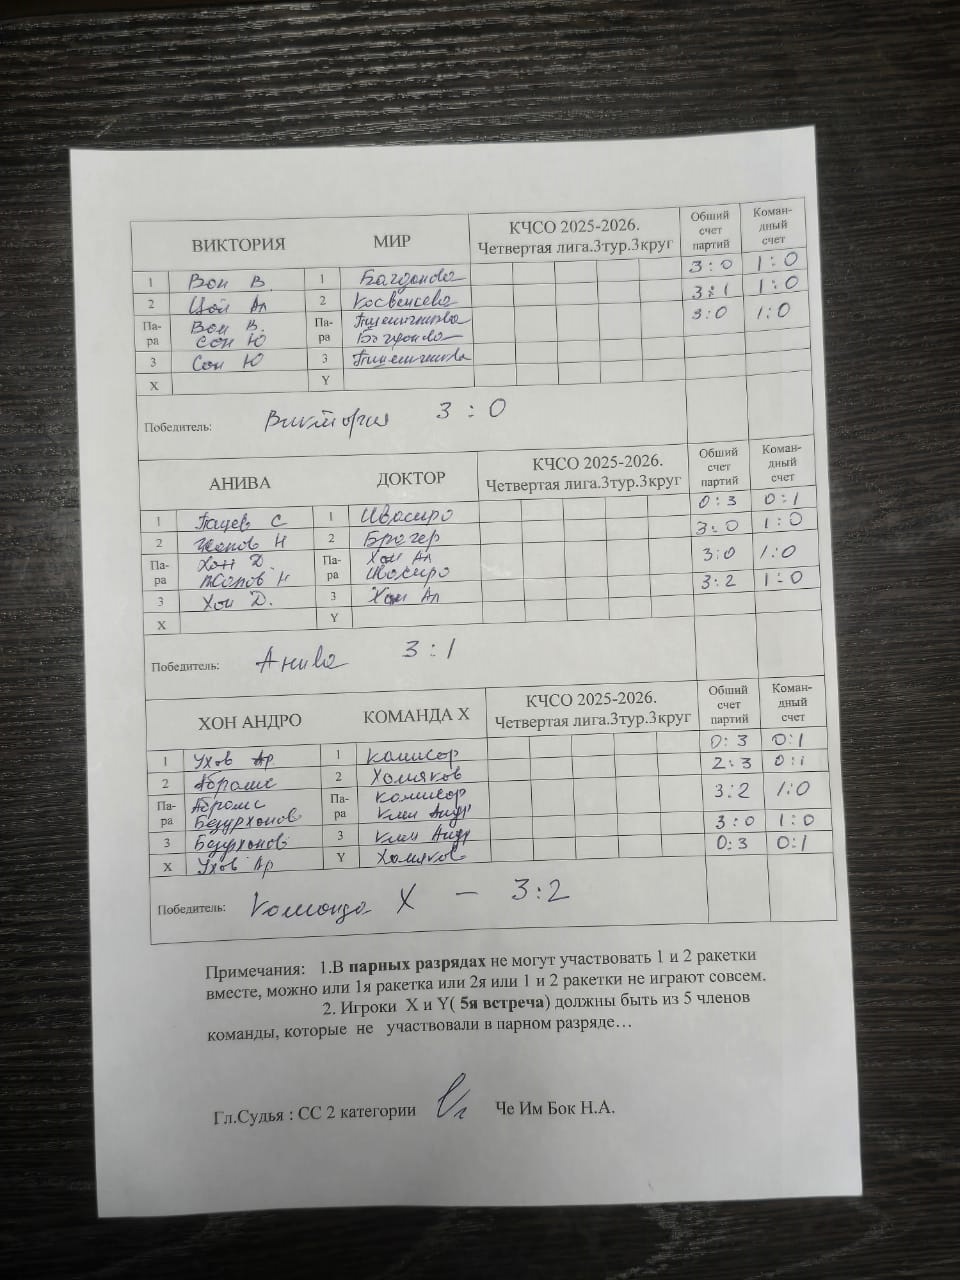 ВИКТОРИЯ МИР КЧСО 2025-2026. Четвертая лига.3тур.3круг Общий счет партий Коман-дный счет
1 Вон В. 1 Багданова 3:0 1:0
2 Цой Ал 2 3:1 1:0
Па-ра Вон В. Па-ра Пшеничникова 3:0 1:0
Сон Ю Багданова
3 Сон Ю 3 Пшеничникова
X Y
Победитель: Виктория 3 : 0
АНИВА ДОКТОР КЧСО 2025-2026. Четвертая лига.3тур.3круг Общий счет партий Коман-дный счет
1 С 1 Ивасиро 0:3 0:1
2 Жапов Н 2 Брагер 3:0 1:0
Па-ра Хон Д. Па-ра Хан Ал 3:0 1:0
Жапов Н Ивасиро
3 Хон Д. 3 Хан Ал 3:2 1:0
X Y
Победитель: Анива 3 : 1
ХОН АНДРО КОМАНДА Х КЧСО 2025-2026. Четвертая лига.3тур.3круг Общий счет партий Коман-дный счет
1 Ухов Ар 1 Камисор 0:3 0:1
2 Абрамс 2 Хомяков 2:3 0:1
Па-ра Абрамс Па-ра Камисор 3:2 1:0
Безурханов Ким Андр
3 Безурханов 3 Ким Андр 3:0 1:0
X Ухов Ар Y Хомяков 0:3 0:1
Победитель: Команда Х – 3:2
Примечания: 1.В парных разрядах не могут участвовать 1 и 2 ракетки
вместе, можно или 1я ракетка или 2я или 1 и 2 ракетки не играют совсем.
2. Игроки X и Y( 5я встреча) должны быть из 5 членов
команды, которые не участвовали в парном разряде…
Гл.Судья : СС 2 категории Че Им Бок Н.А.